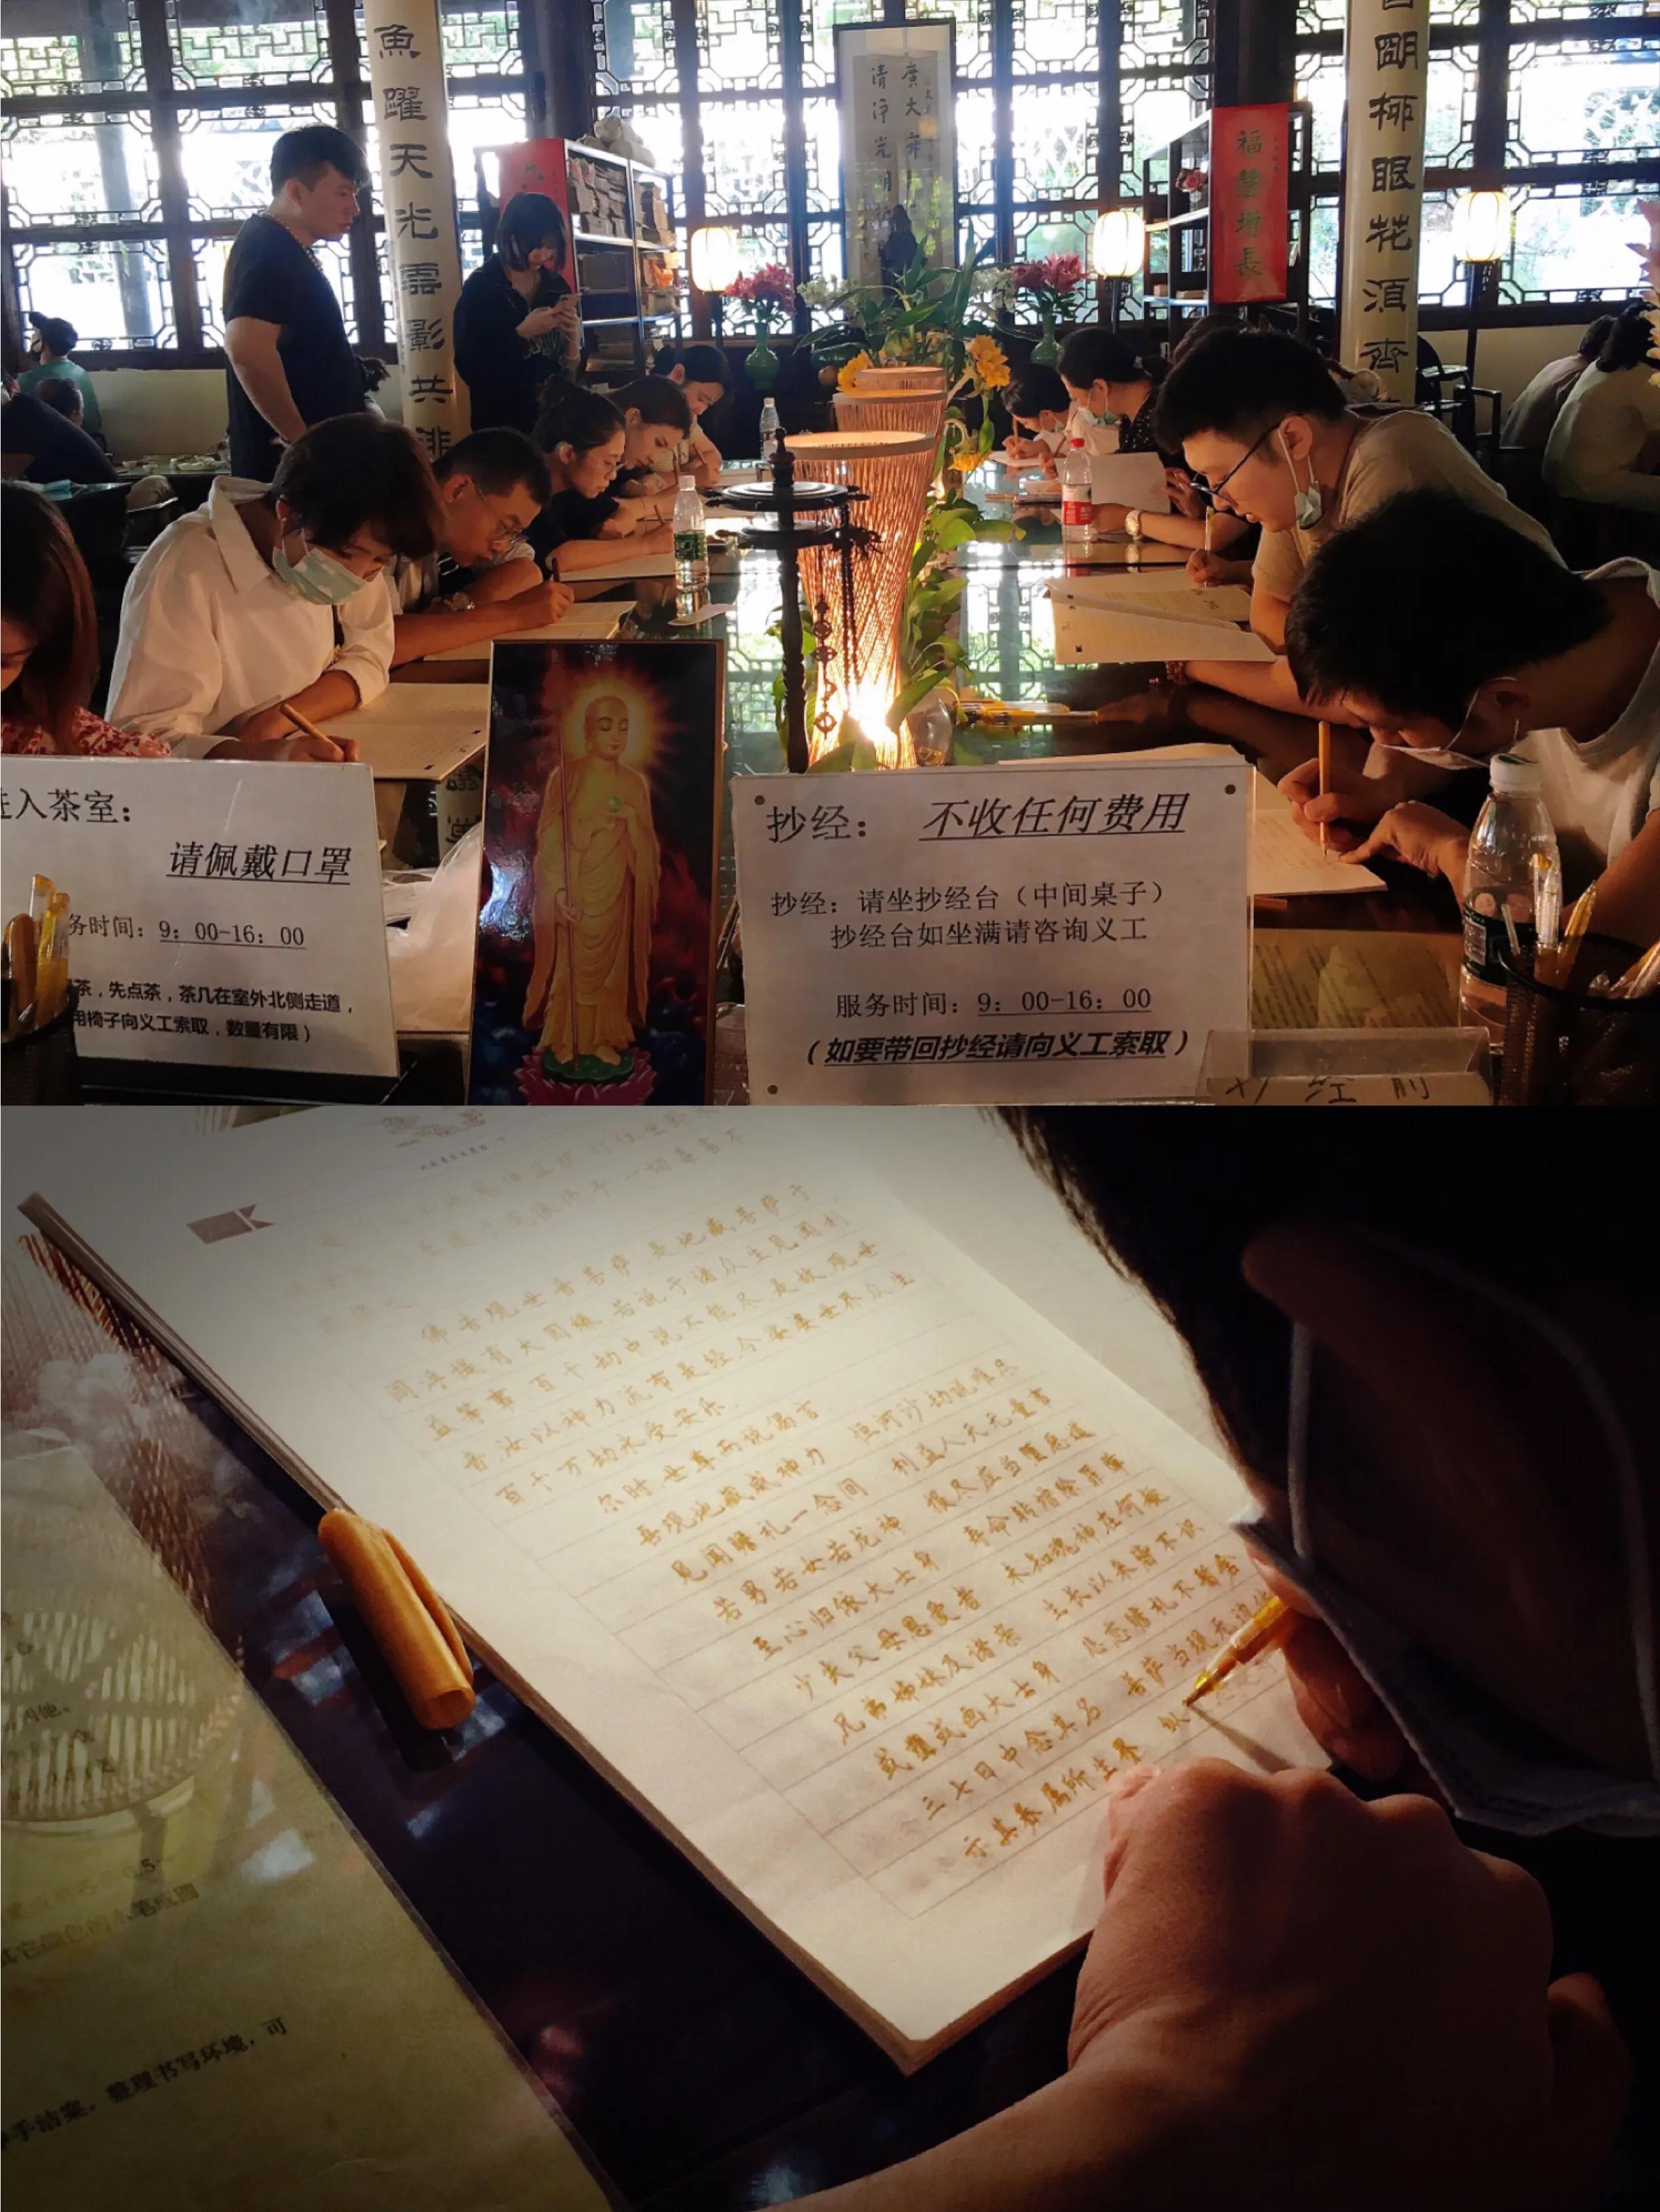 魚躍天光雲影共
開柳眼花須齊
廣大
清淨光明
福慧增長
六
进入茶室：
请佩戴口罩
务时间：9：00-16：00
茶，先点茶，茶几在室外北侧走道，
用椅子向义工索取，数量有限）
抄经： 不收任何费用
抄经：请坐抄经台（中间桌子）
抄经台如坐满请咨询义工
服务时间：9：00-16：00
（如要带回抄经请向义工索取）
经前
一切毒害不
佛告观世音菩萨 是地藏菩萨于
阎浮提有大因缘 若说于诸众生见闻利
益等事 百千劫中说不能尽 是故 观世
音汝以神力流布是经 令娑婆世界众生
百千万劫永受安乐
尔时 世尊而说偈言
吾观地藏威神力 恒河沙劫说难尽
见闻瞻礼一念间 利益人天无量事
若男若女若龙神 报尽应当堕恶道
至心归依大士身 寿命转增除罪障
少失父母恩爱者 未知魂神在何趣
兄弟姊妹及诸亲 生长以来皆不识
或塑或画大士身 悲恋瞻礼不暂舍
三七日中念其名 菩萨当现无边体
示其眷属所生界 纵
其它颜色的水笔或圆
手洁案，整理书写环境，可